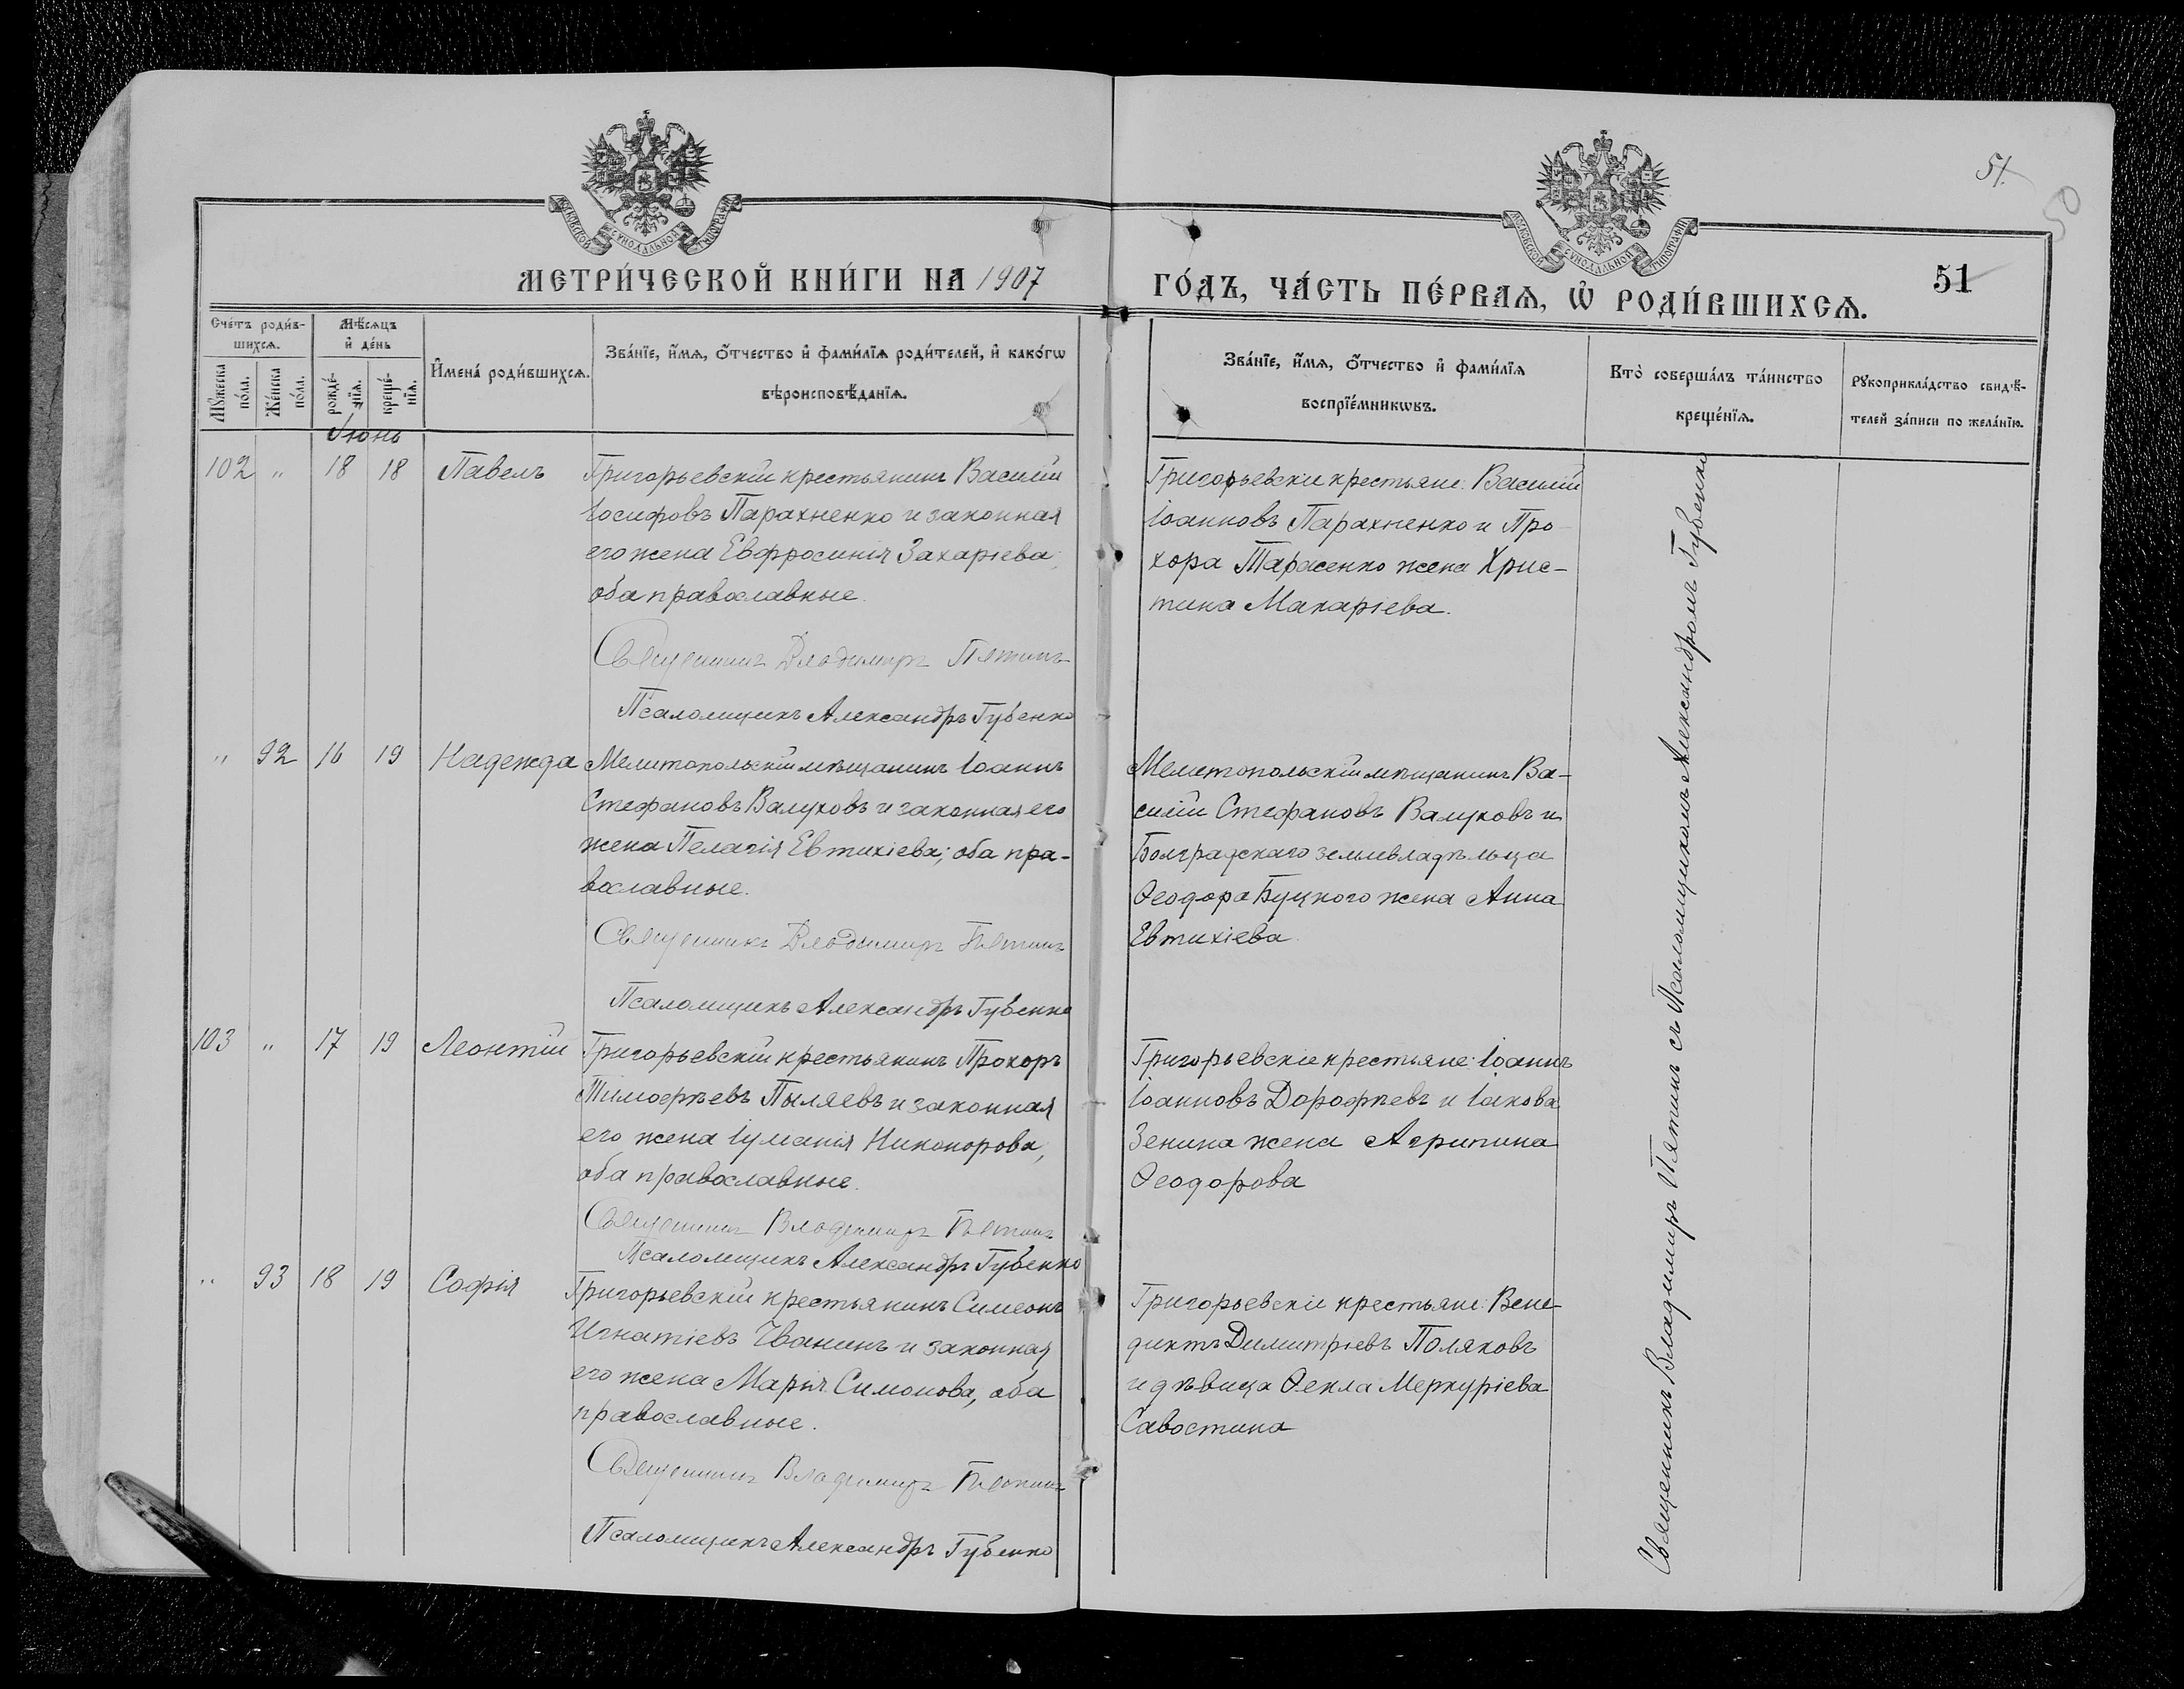 51.
50
МОСКОВСКОЙ СѴНОДАЛЬНОЙ ТИПОГРАФІИ
МОСКОВСКОЙ СѴНОДАЛЬНОЙ ТИПОГРАФІИ
МЕТРИ́ЧЕСКОЙ КНИ́ГИ НА 1907
ГО́ДЪ, ЧА́СТЬ ПЕ́РВАѦ, Ѡ РОДИ́ВШИХСѦ.
51
Сче́тъ роди́в-
шихсѧ.
Мꙋ́жеска по́ла.
Же́нска по́ла.
Мѣ́сѧцъ
и де́нь
рожде́-нїѧ.
креще́-нїѧ.
Имена́ роди́вшихсѧ.
Зва́нїе, и́мѧ, ѻ́тчество и фами́лїѧ роди́телей, и како́гѡ
вѣроисповѣ́данїѧ.
Зва́нїе, и́мѧ, ѻ́тчество и фами́лїѧ
воспрїе́мникѡвъ.
Кто̀ соверша́лъ та́инство
креще́нїѧ.
Рꙋкоприкла́дство свидѣ́-
телей за́писи по жела́нїю.
Іюнь
102 " 18 18 Павелъ Григорьевскій крестьянинъ Василій
Іосифовъ Парахненко и законная
его жена Евфросинія Захаріева,
оба православные.
Священникъ Владимиръ Пятинъ
Псаломщикъ Александръ Губенко
Григорьевскіе крестьяне: Василій
Іоанновъ Парахненко и Про-
хора Тарасенко жена Хрис-
тина Макаріева.
" 92 16 19 Надежда Мелитопольскій мѣщанинъ Іоаннъ
Стефановъ Валуховъ и законная его
жена Пелагія Евтихіева; оба пра-
вославные.
Священникъ Владимиръ Пятинъ
Псаломщикъ Александръ Губенко
Мелитопольскій мѣщанинъ Ва-
силій Стефановъ Валуховъ и
Болградскаго землевладѣльца
Ѳеодора Буцкого жена Анна
Евтихіева
103 " 17 19 Леонтій Григорьевскій крестьянинъ Прохоръ
Тимоѳѣевъ Пыляевъ и законная
его жена Іуліанія Никонорова,
оба православные.
Священникъ Владимиръ Пятинъ
Псаломщикъ Александръ Губенко
Григорьевскіе крестьяне: Іоаннъ
Іоанновъ Дороѳѣевъ и Іакова
Зенина жена Агрипина
Ѳеодорова
" 93 18 19 Софія Григорьевскій крестьянинъ Симеонъ
Игнатіевъ Чванинъ и законная
его жена Марія Симонова, оба
православные.
Священникъ Владимиръ Пятинъ
Псаломщикъ Александръ Губенко
Григорьевскіе крестьяне: Вене-
диктъ Димитріевъ Поляковъ
и дѣвица Ѳекла Меркуріева
Савостина
Священникъ Владимиръ Пятинъ съ Псаломщикомъ Александромъ Губенко